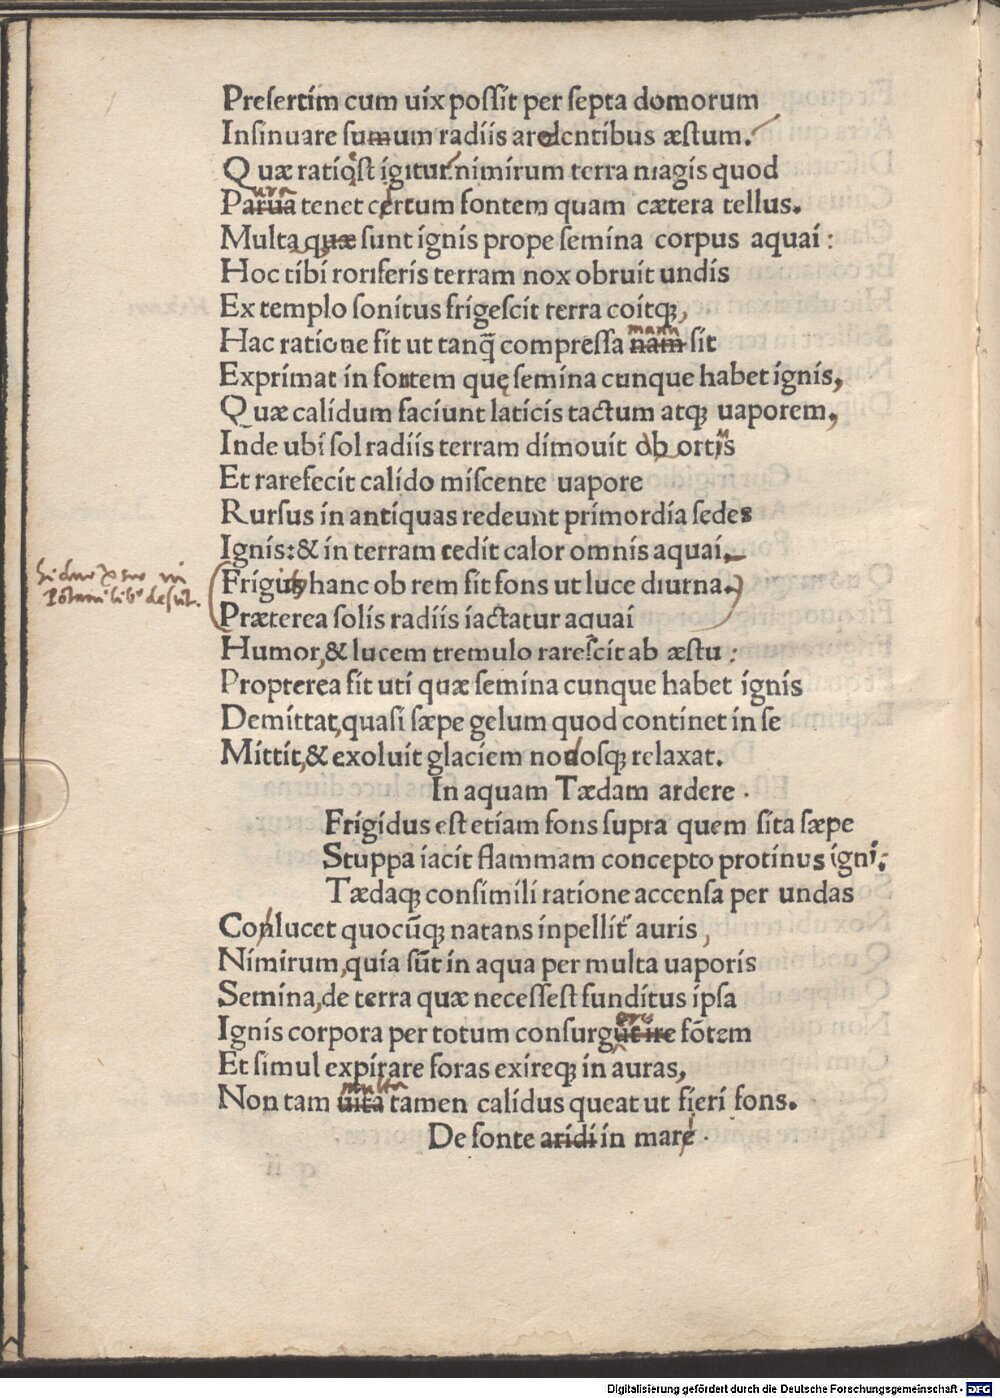 Preſertim cum uix poſſit per ſepta domorum
Inſinuare ſumum radiis ardentibus æſtum.
Quæ ratioſt igitur nimirum terra magis quod
Parua tenet certum fontem quam cætera tellus.
ura
Multa quæ ſunt ignis prope ſemina corpus aquai:
Hoc tibi ronferis terram nox obruit undis
Ex templo ſonitus frigeſcit terra coitqꝫ,
Hac ratione fit ut tanq̃ compreſſa nam ſit
manu
Exprimat in fontem quę ſemina cunque habet ignis,
Quæ calidum faciunt laticis tactum atqꝫ uaporem,
Inde ubi ſol radiis terram dimouit ob ortis
Et rarefecit calido miſcente uapore
Rurſus in antiquas redeunt primordia ſedes
Ignis: & in terram cedit calor omnis aquai.
Frigus hanc ob rem fit fons ut luce diurna.
Præterea ſolis radiis iactatur aquai
Humor, & lucem tremulo rareſcit ab æſtu:
Propterea fit uti quæ ſemina cunque habet ignis
Demittat, quaſi ſæpe gelum quod continet in ſe
Mittit, & exoluit glaciem nodoſqꝫ relaxat.
In aquam Tædam ardere.
Frigidus eſt etiam fons ſupra quem ſita ſæpe
Stuppa iacit flammam concepto protinus igni:
Tædaqꝫ conſimili ratione accenſa per undas
Conlucet quocūqꝫ natans inpellit̃ auris,
Nimirum, quia ſūt in aqua per multa uaporis
Semina, de terra quæ neceſſeſt funditus ipſa
Ignis corpora per totum conſurgūt ire fōtem
ere
Et ſimul expirare foras exireqꝫ in auras,
Non tam uita tamen calidus queat ut fieri fons.
multa
De fonte aridi in mare.
Digitalisierung gefördert durch die Deutsche Forschungsgemeinschaft - DFG